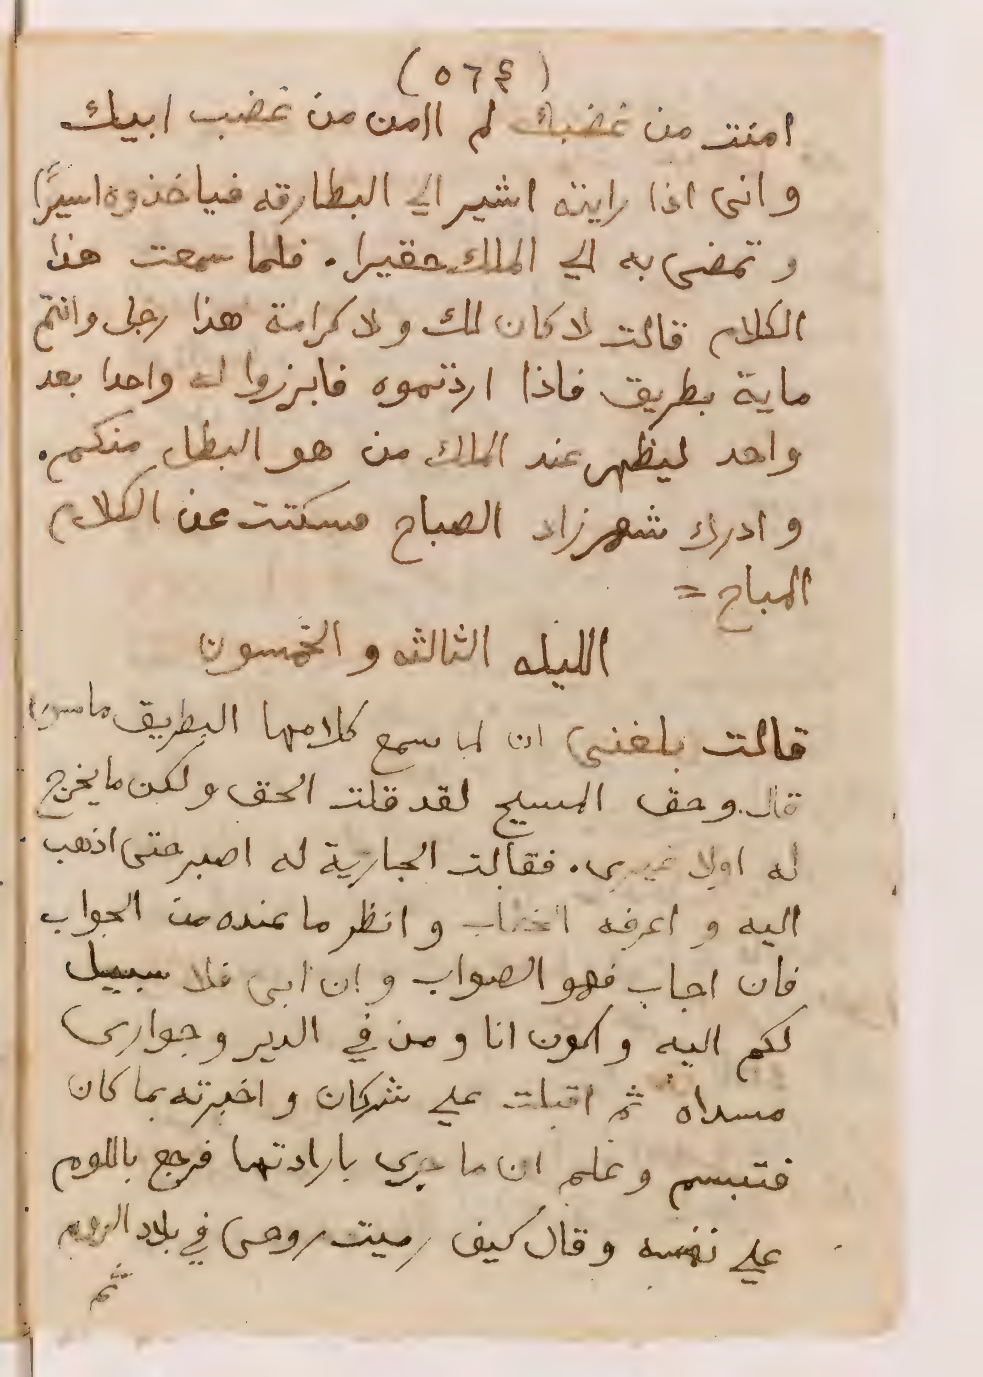 (٥٦٤)
امنت من غضبك لم اامن من غضب ابيك
وانى اذا رايته اشير الي البطارقه فياخذوه اسيرًا
و تمضى به الي الملك حقيرا . فلما سمعت هذا
الكلام قالت لا كان لك ولا كرامة هذا رجل وانتم
ماية بطريق فاذا اردتموه فابرزوا له واحدا بعد
واحد ليظهر عند الملك من هو البطل منكم .
و ادرك شهرزاد الصباح فسكتت عن الكلام
المباح =
الليله الثالثه و الخمسون
قالت بلغنى ان لما سمع كلامها البطريق
قال وحق المسيح لقد قلت الحق ولكن ما يخرج
له اولا غيرى . فقالت الجارية له اصبر حتى اذهب
اليه و اعرفه الخطاب و انظر ما عنده من الجواب
فان اجاب فهو الصواب و ان ابى فلا سبيل
لكم اليه و اكون انا و من في الدير و جوارى
فداه ثم اقبلت علي شركان و اخبرته بما كان
فتبسم و علم ان ما جرى بارادتها فرجع باللوم
علي نفسه و قال كيف رميت روحى في بلاد الروم
ثم